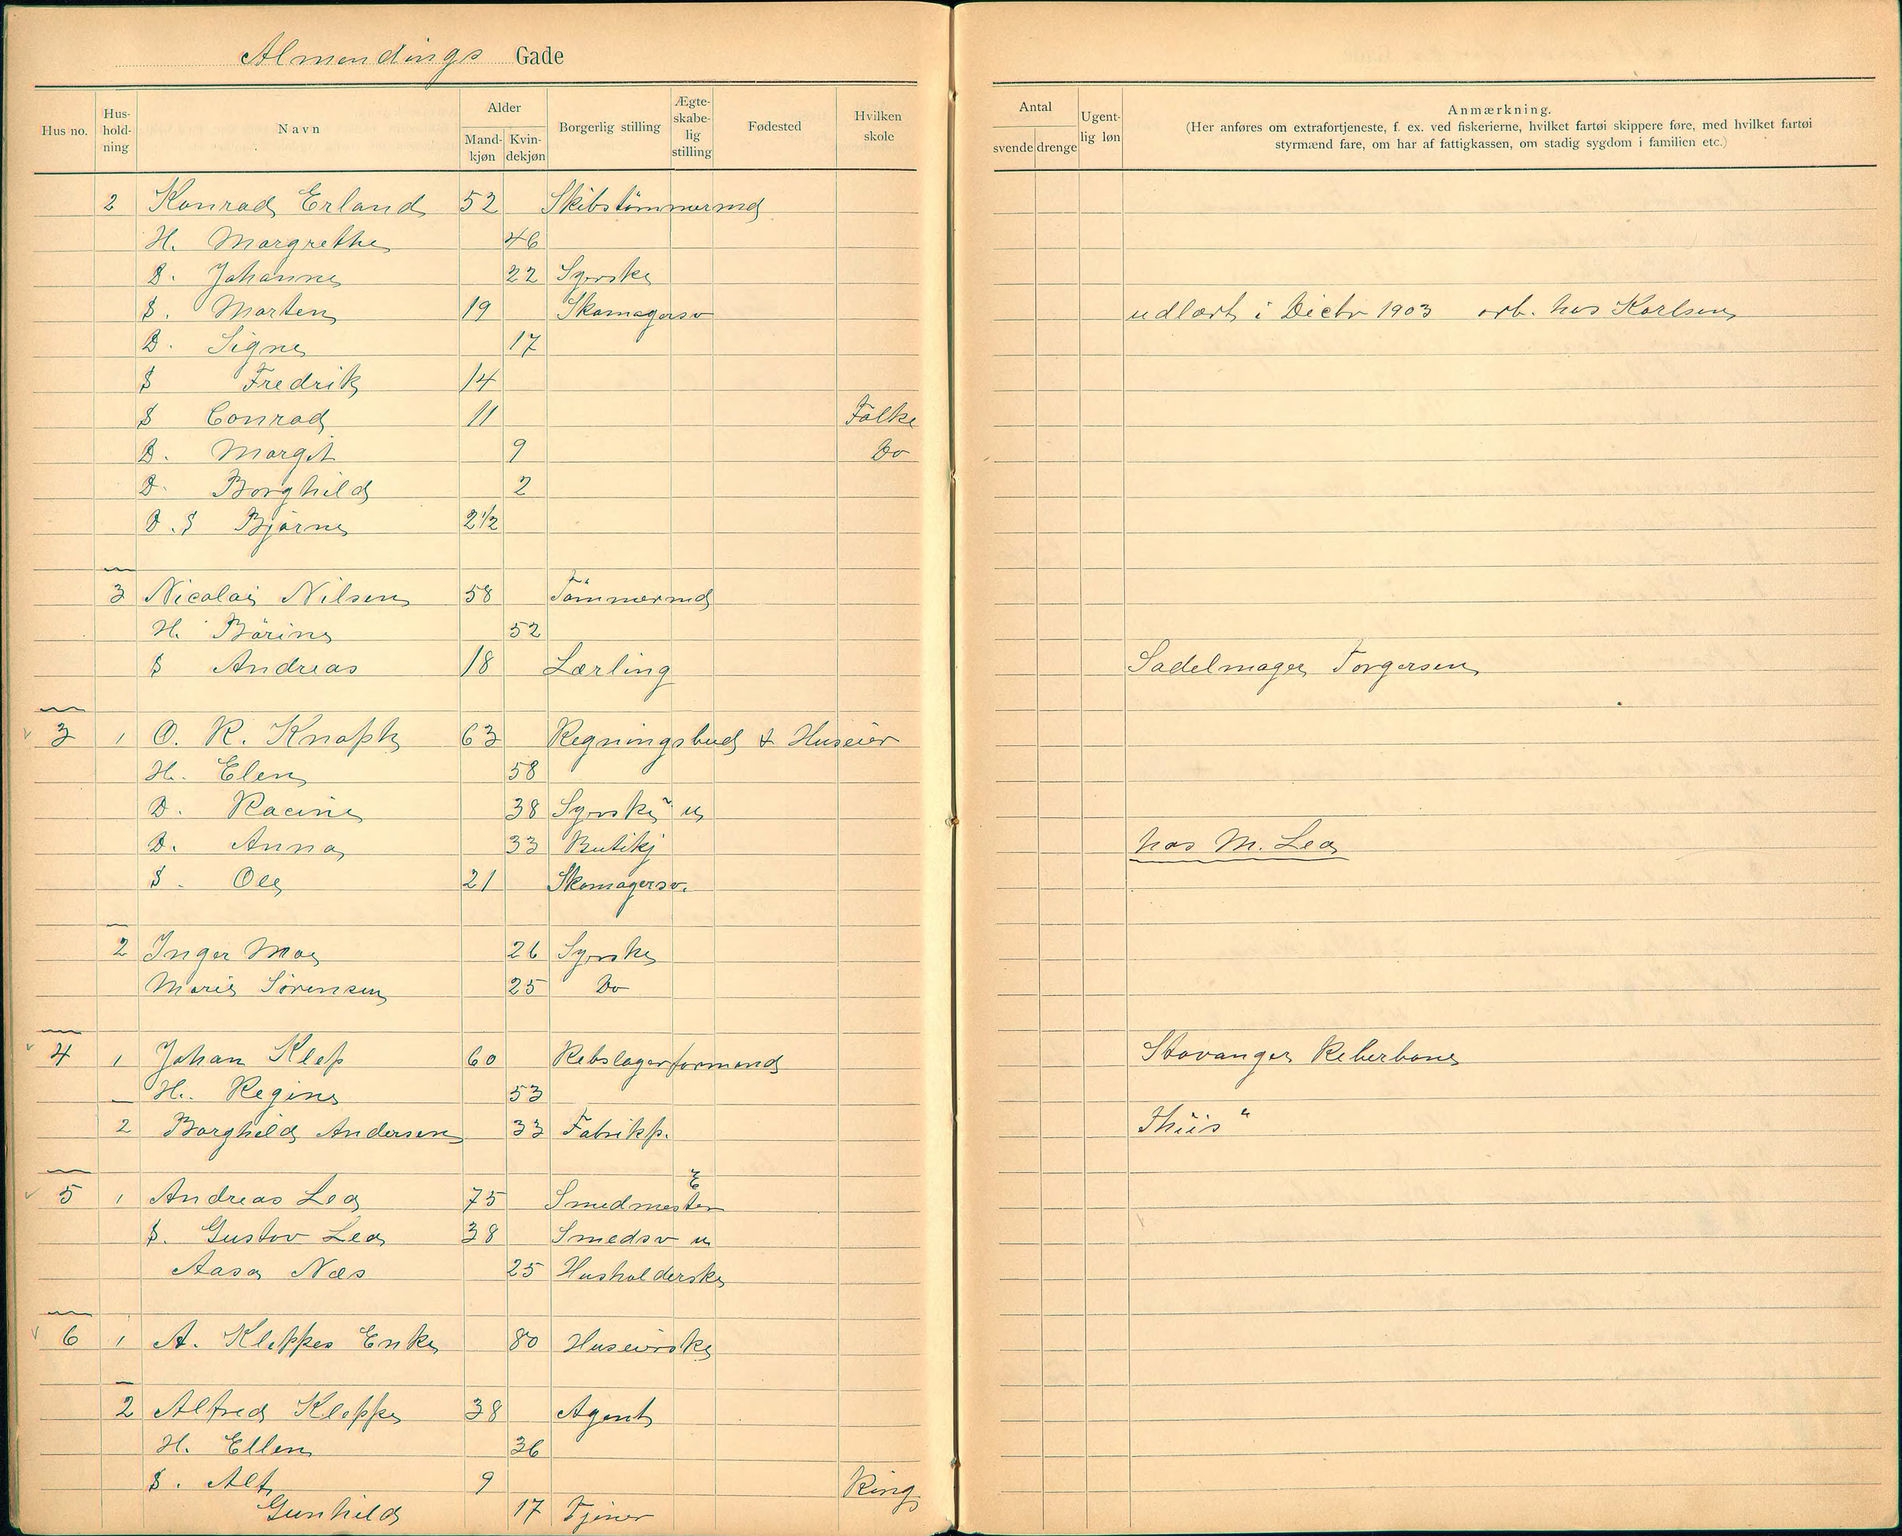 Almendings Gade
Hus no. Hus-hold-ning Navn Alder Mand-kjøn Kvin-dekjøn Borgerlig stilling Ægte-skabe-lig stilling Fødested Hvilken skole
Antal svende drenge Ugent-lig løn Anmærkning.
(Her anføres om extrafortjeneste, f. ex. ved fiskerierne, hvilket fartøi skippere føre, med hvilket fartøi
styrmænd fare, om har af fattigkassen, om stadig sygdom i familien etc.)
2 Konrad Erland 52 Skibstømmermd
H. Margrethe 46
D. Johanne 22 Syerske
S. Morten 19 Skomagersv udlært i Decbr 1903 arb. hos Karlsen
D. Signe 17
S Fredrik 14
S Conrad 11 Folke
D. Margit 9 Do
D. Borghild 2
D.S Bjarne 2 1/2
3 Nicolai Nilsen 58 Tømmermd
H. Børine 52
S Andreas 18 Lærling Sadelmager Torgersen
3 1 O. R. Knoph 63 Regningsbud & Huseier
H. Elen 58
D. Racine 38 Syerske u
D. Anna 33 Butikj hos M. Lea
S. Ole 21 Skomagersv.
2 Inger Moe 26 Syerske
Marie Sørensen 25 Do
4 1 Johan Klep 60 Rebslagerformand Stavanger Reberbane
H. Regine 53
2 Borghild Andersen 33 Fabrikp. Thiis "
5 1 Andreas Lea 75 Smedmester E
S. Gustav Lea 38 Smedsv u
Aasa Næs 25 Husholderske
6 1 A. Kleppes Enke 80 Huseierske
2 Alfred Kleppe 38 Agent
H. Ellen 36
S. Alf 9 Ring
Gunhild 17 Tjener